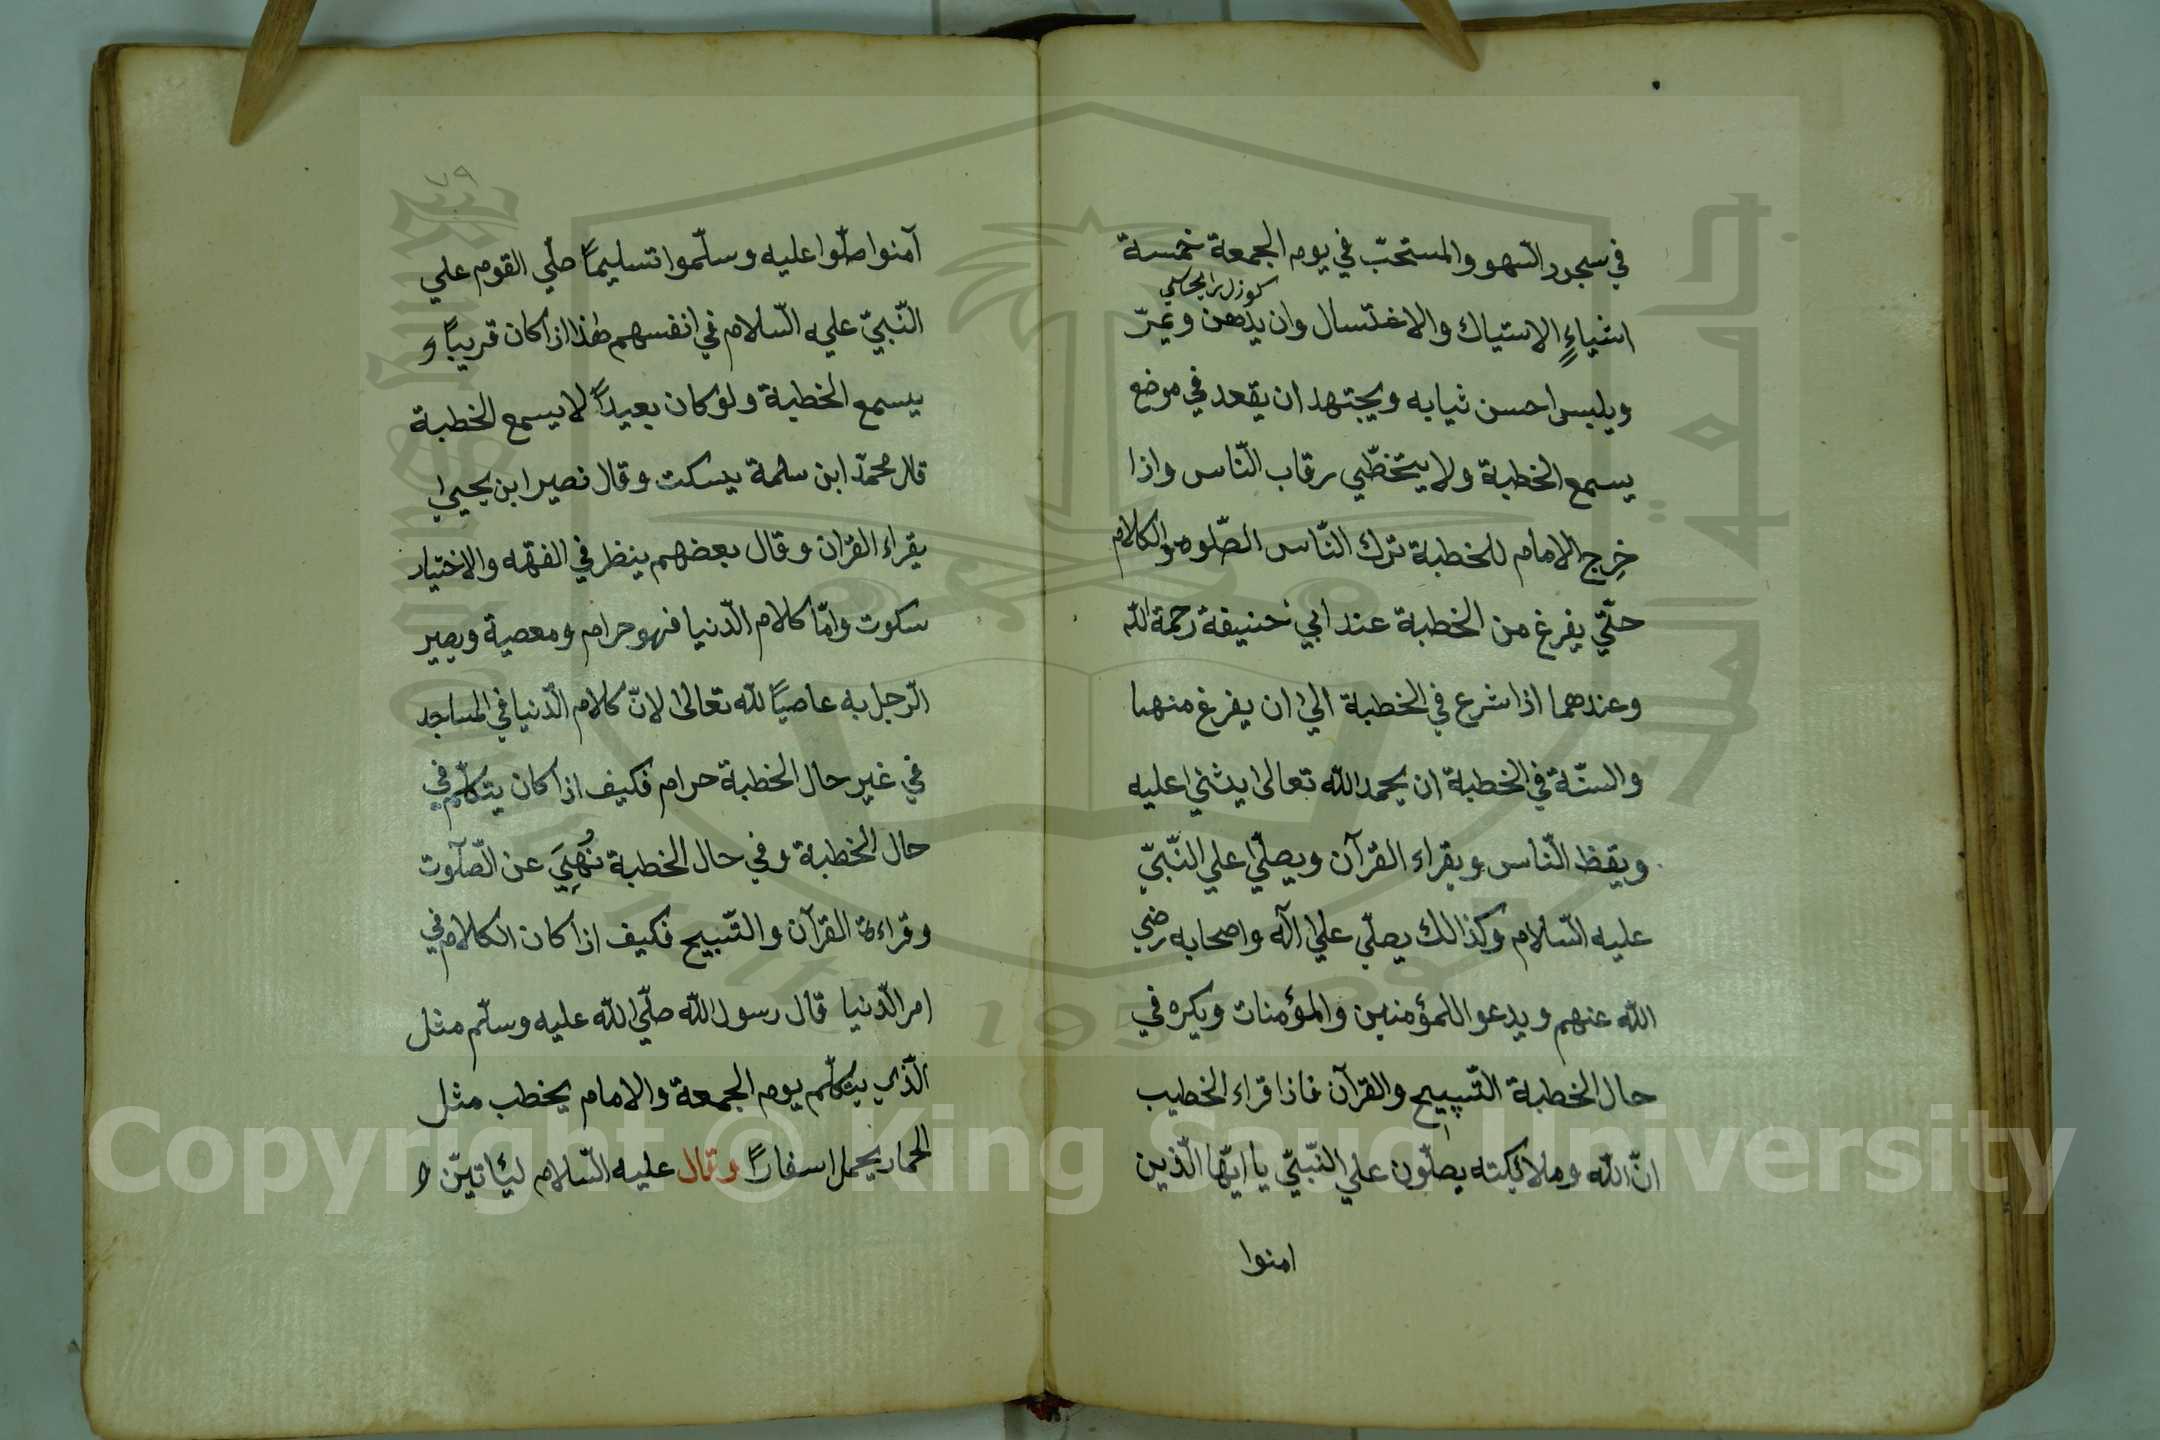 في سجود السّهو والمستحبّ في يوم الجمعة خمسة
اشياءٍ الاستياك والاغتسال وان يدهن ويمرّ
ويلبس احسن ثيابه ويجتهد ان يقعد في موضع
يسمع الخطبة ولا يتخطّي رقاب النّاس واذا
خرج الامام للخطبة ترك النّاس الصّلوة والكلام
حتّي يفرغ من الخطبة عند ابي حنيفة رحمة الله
وعندهما اذا شرع في الخطبة الي ان يفرغ منها
والسنّة في الخطبة ان يحمد الله تعالى يثني عليه
ويقظ النّاس ويقراء القرآن ويصلّي علي النّبيّ
عليه السّلام وكذالك يصلّي علي اآله واصحابه رضي
الله عنهم ويدعوا للمؤمنين والمؤمنات ويكره في
حال الخطبة التّسبيح والقرآن فاذا قراء الخطيب
انّ الله وملائكته يصلّون علي النّبيّ يا ايّها الّذين
امنوا
٧٩
آمنوا صلّوا عليه وسلّموا تسليماً صلّي القوم علي
النّبيّ عليه السّلام في انفسهم هذا اذا كان قريباً و
يسمع الخطبة ولو كان بعيداً لا يسمع الخطبة
قال محمّد ابن سلمة يسكت وقال نصير ابن يحيي
يقراء القران وقال بعضهم ينظر في الفقه والاختيار
سكوت وامّا كلام الدّنيا فهو حرام ومعصية ويصير
الرّجل به عاصياً لله تعالى لانّ كلام الدّنيا في المساجد
في غير حال الخطبة حرام فكيف اذا كان يتكلّم في
حال الخطبة وفي حال الخطبة نُهِيَ عن الصّلوت
وقراءة القرآن والتّسبيح فكيف اذا كان الكلام في
امر الدّنيا قال رسول الله صلّي الله عليه وسلّم مثل
الّذي يتكلّم يوم الجمعة والامام يخطب مثل
الحمار يحمل اسفاراً وقال عليه السّلام ليأتينّ و
جامعة الملك سعود
King Saud University
1957
Copyright © King Saud University